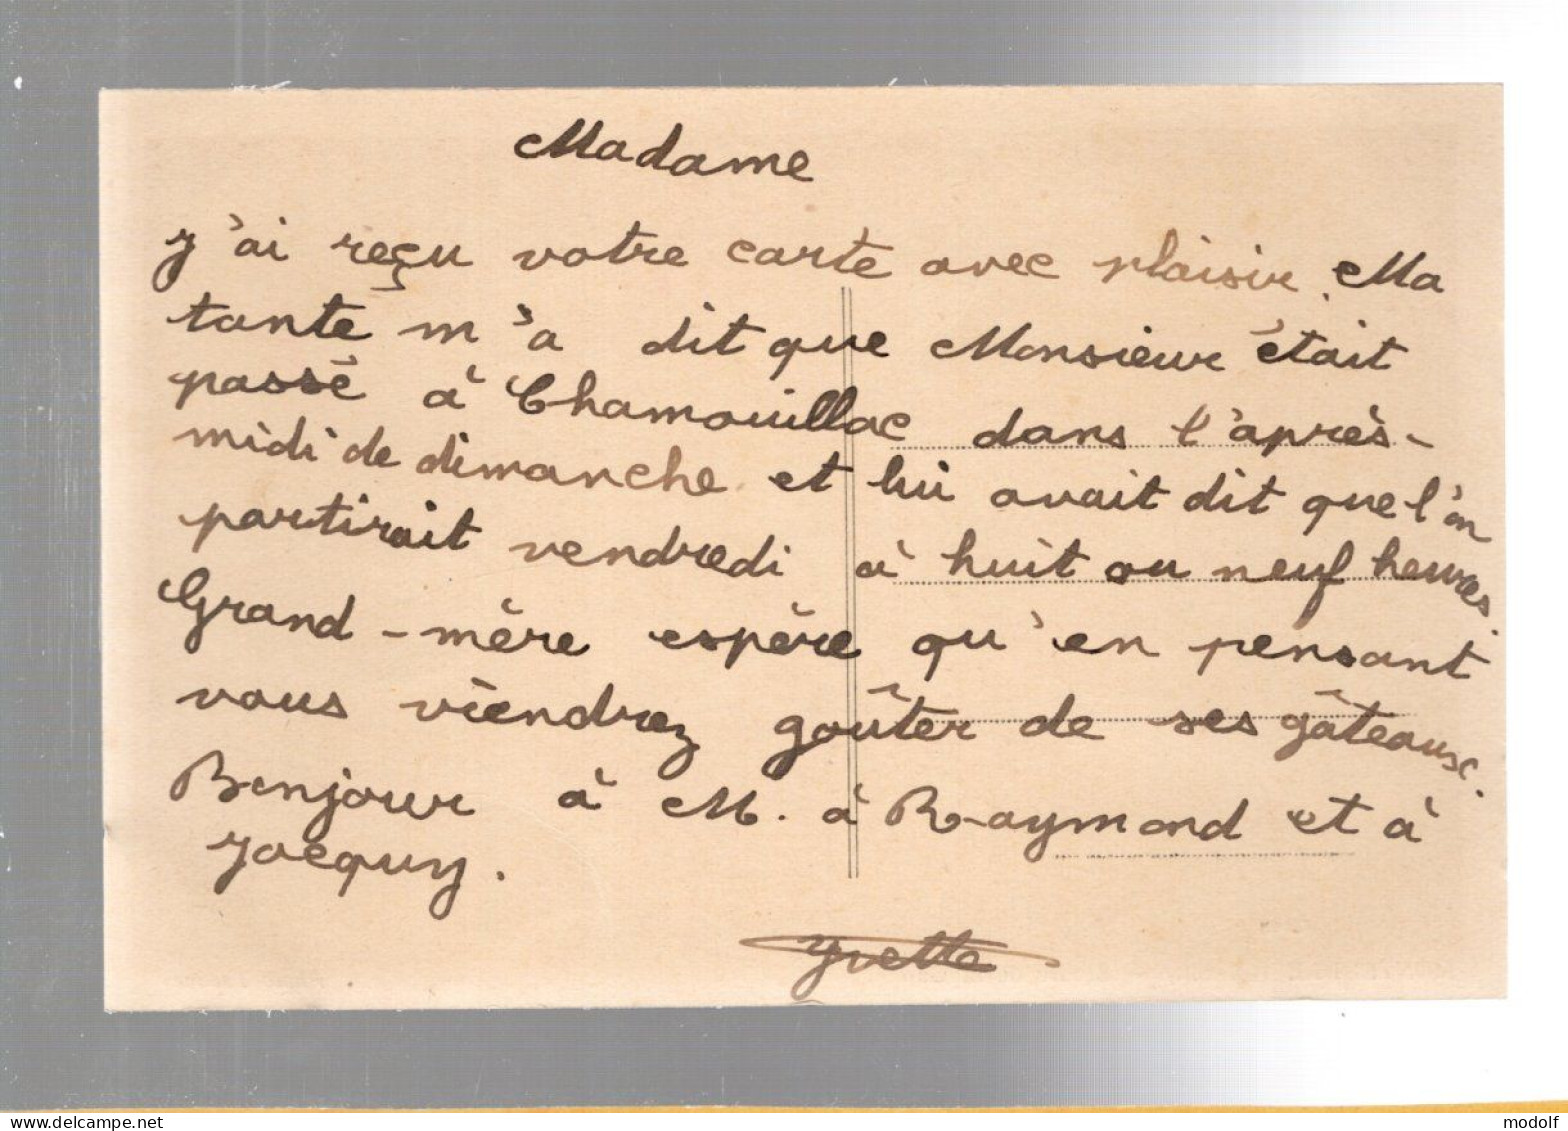 Madame
j'ai reçu votre carte avec plaisir. Ma
tante m'a dit que Monsieur était
passé à Chamouillac dans l'après-
midi de dimanche et lui avait dit que l'on
partirait vendredi à huit ou neuf heures.
Grand-mère espère qu'en pensant
vous viendrez goûter de ses gâteaux.
Bonjour à M. à Raymond et à
Jacquy.
Yvette
delcampe.net
modolf